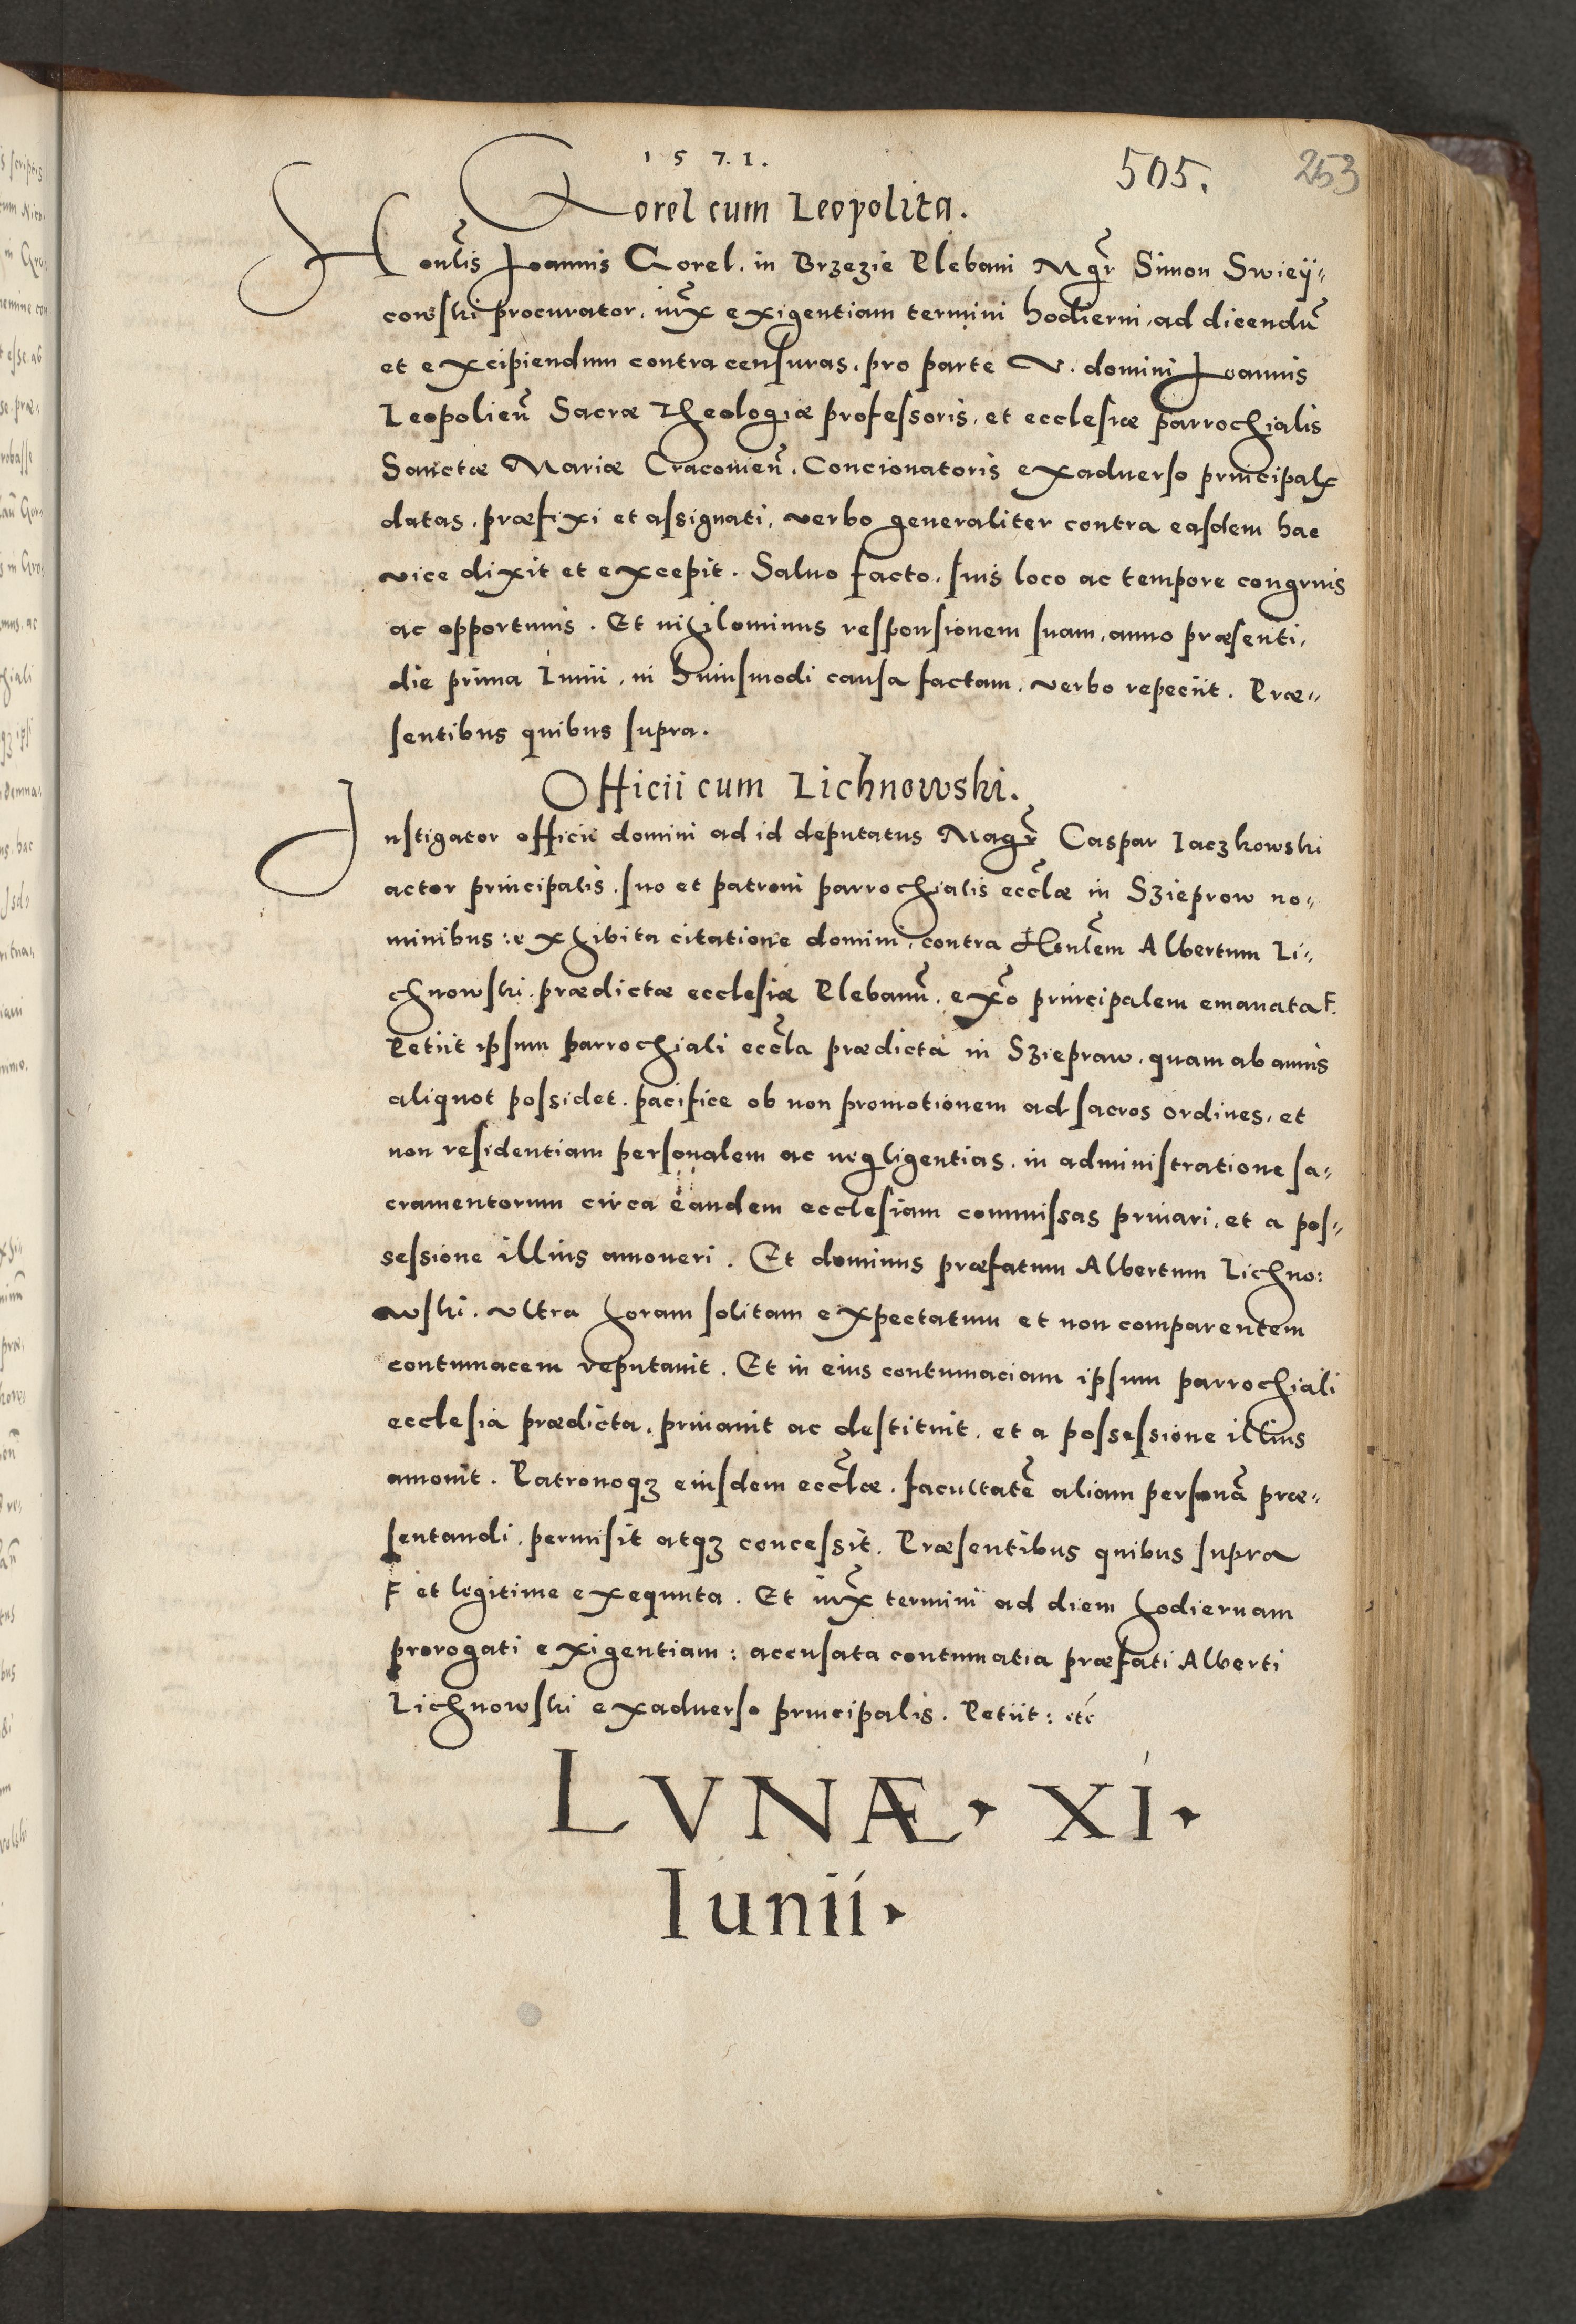 1 5 7. 1.
505. 253
Gorel cum Leopolita.
Honlis Joannis Gorel. in Brzezie Plebani Mgr Simon Swiey„
cowski procurator. iux exigentiam termini hodierni, ad dicendu
et excipiendum contra censuras. pro parte V. domini Joannis
Leopolien Sacræ Theologiæ professoris, et ecclesiæ parrochialis
Sanctæ Mariæ Cracovien. Concionatoris exaduerso principalx
datas. præfixi et assignati, verbo generaliter contra easdem hac
vice dixit et excepit. Saluo facto. suis loco ac tempore congruis
ac opportunis. Et nihilominus responsionem suam, anno præsenti,
die prima Iunii, in huiusmodi causa factam. verbo repeciit. Præ„
sentibus quibus supra.
Officii cum Lichnowski.
Instigator officii domini ad id deputatus Magr Caspar Iaczkowski
actor principalis. suo et patroni parrochialis eccłæ in Szieprow no„
minibus: exhibita citatione domini, contra Honlem Albertum Li„
chnowski. prædictæ ecclesiæ Plebanu. exo principalem emanata F.
Petiit ipsum parrochiali eccła prædicta in Sziepraw. quam ab annis
aliquot possidet. pacifice ob non promotionem ad sacros ordines, et
non residentiam personalem ac negligentias. in administratione sa„
cramentorum circa eandem ecclesiam commissas priuari, et a pos„
sessione illius amoueri. Et dominus præfatum Albertum Lichno:
wski. vltra horam solitam expectatum et non comparentem
contumacem reputauit. Et in eius contumaciam ipsum parrochiali
ecclesia prædicta. priuauit ac destituit. et a possessione illius
amouit. Patronoqz eiusdem eccłæ. facultate aliam persona præ„
sentandi. permisit atqz concessit. Præsentibus quibus supra
F et legitime exequuta. Et iux termini ad diem hodiernam
prorogati exigentiam: accusata contumatia præfati Alberti
Lichnowski exaduerso principalis. Petiit: etc
LVNÆ. XI.
Iunii.